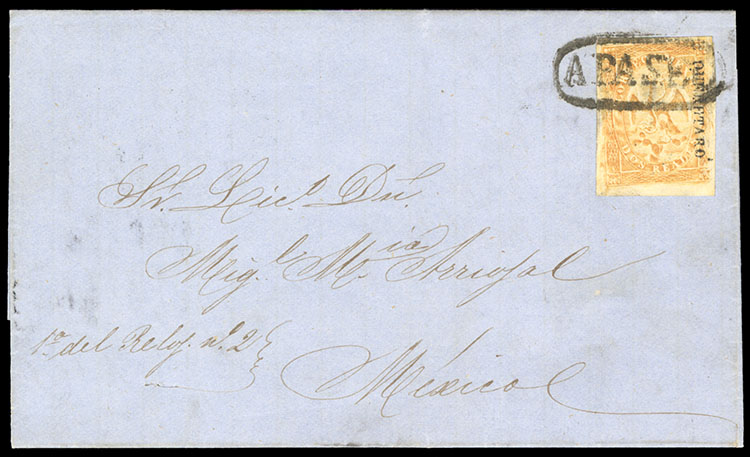 APASEO
QUERETARO
DOS REALES
Sr. Lic.º Dn.
Mig.l M.ia Arriojal
1ª del Reloj nº 2
México